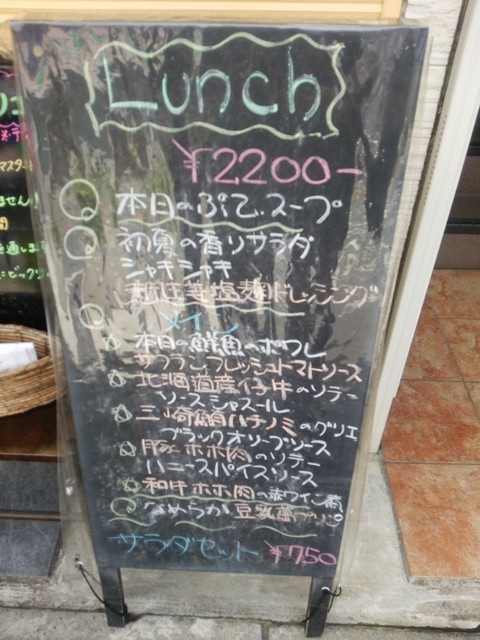 Lunch
¥2200-
本日のぷてぃスープ
初夏の香りサラダ
シャキシャキ
塩麹ドレッシング
メイン
本日の鮮魚のポワレ
フレッシュトマトソース
北海道産仔牛のソテー
ソースシャスール
三崎鮪ハチノミのグリエ
ブラックオリーブソース
豚ホホ肉のソテー
ハニースパイスソース
和牛ホホ肉の赤ワイン煮
なめらか豆乳プリン
サラダセット ¥750